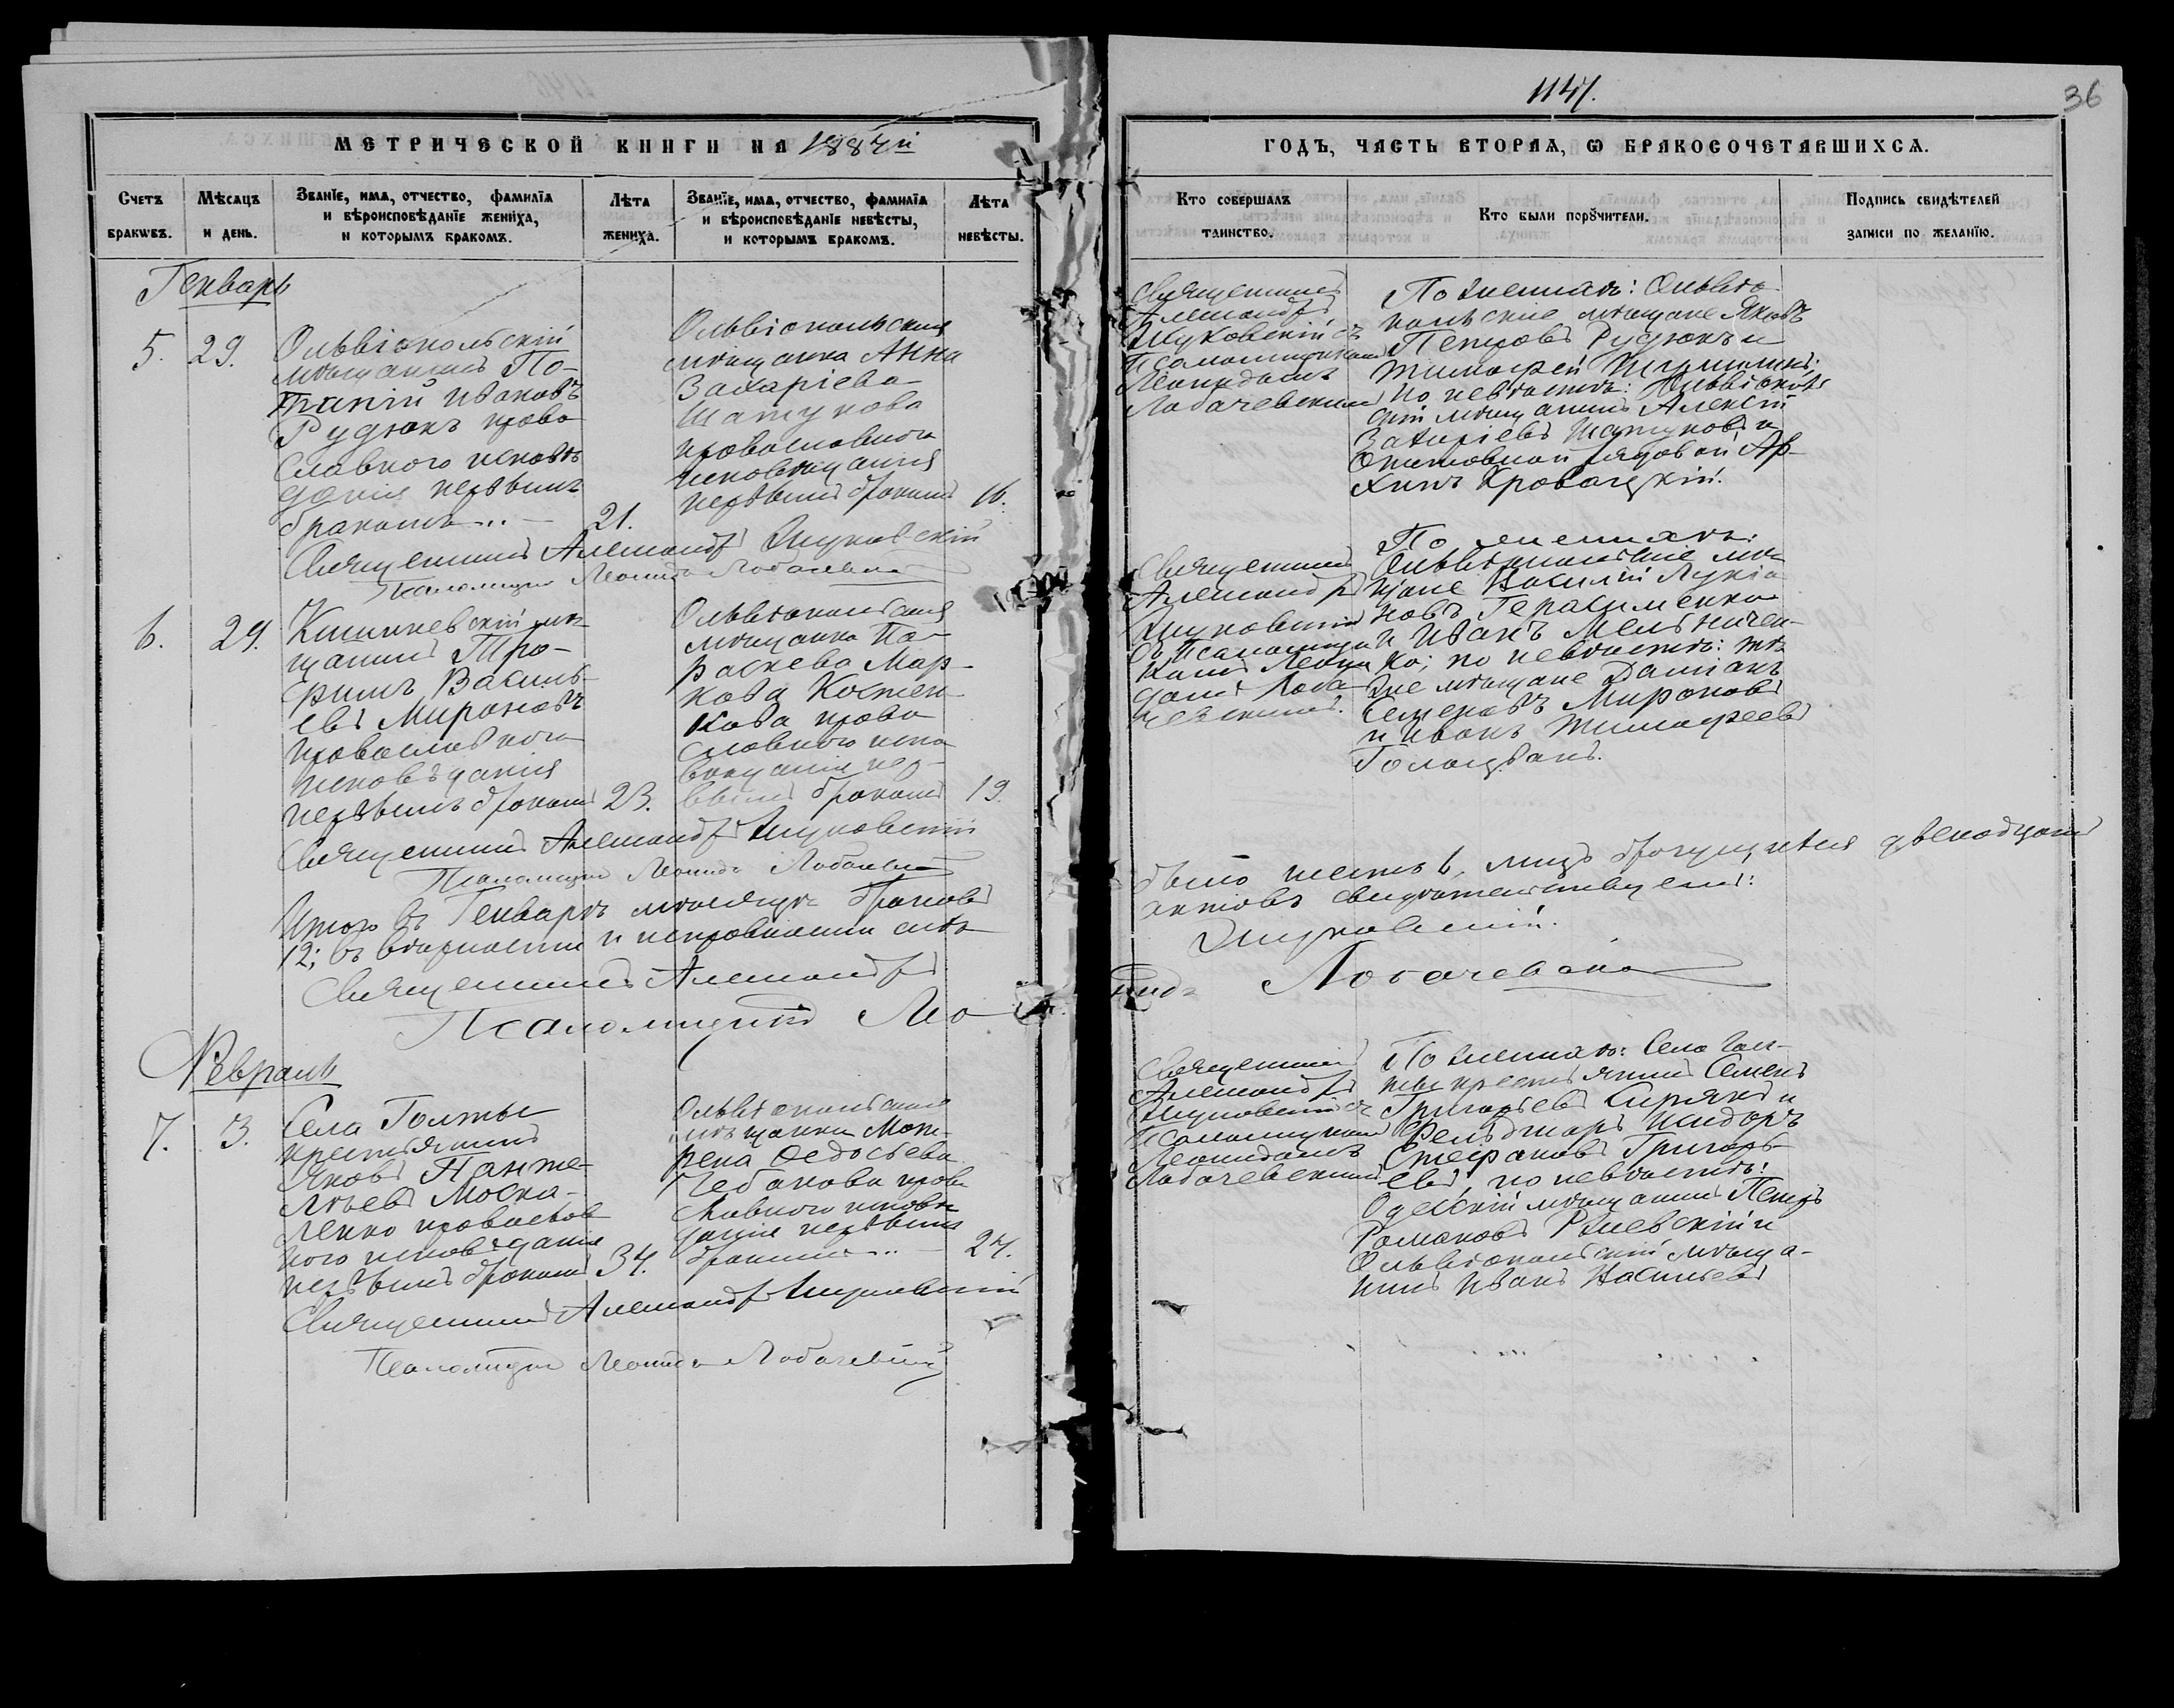 1147.
36
МЕТРИЧЕСКОЙ КНИГИ НА 1887й
ГОДЪ, ЧАСТЬ ВТОРАЯ, Ѡ БРАКОСОЧЕТАВШИХСЯ.
Счетъ браковъ.
Мѣсяцъ и день.
Званїе, имя, отчество, фамилїя
и вѣроисповѣданїе жениха,
и которымъ бракомъ.
Лѣта
жениха.
Званїе, имя, отчество, фамилїя
и вѣроисповѣданїе невѣсты,
и которымъ бракомъ.
Лѣта
невѣсты.
Кто совершалъ
таинство.
Кто были поручители.
Подпись свидѣтелей
записи по желанїю.
Генварь
5. 29.
Ольвіопольскій
мѣщанинъ По-
тапій Ивановъ
Рудюкъ право
славного исповѣ
данія первымъ
бракомъ
21.
Ольвіопольская
мѣщанка Анна
Захаріева
Шатукова
православного
исповѣданія
первымъ бракомъ
16.
Священникъ
Александръ
Жуковскій съ
Псаломщикомъ
Леонидомъ
Лобачевскимъ
По женихѣ: Ольвіо
польскіе мѣщане Яковъ
Петровъ Рудюкъ и
Тимофей
по невѣстѣ: Ольвіополь
скій мѣщанинъ Алексій
Захаріевъ Шатуковъ и
рядовой Ар-
хипъ Кровацкій.
Священникъ Александръ Жуковскій
Псаломщикъ Леонидъ Лобачевскій
6. 29.
Кишиневскій мѣ
щанинъ Тро-
фимъ Василь-
евъ Мироновъ
православного
исповѣданія
первымъ бракомъ
23.
Ольвіопольская
мѣщанка Па-
раскева Мар-
кова Костен-
кова право
славного испо
вѣданія пер-
вымъ бракомъ
19.
Священникъ
Александръ
Жуковскій
съ Псаломщи
комъ Леони
домъ Лоба
чевскимъ.
По женихѣ:
Ольвіопольскіе мѣ
щане Василій Лукіа
новъ Герасименко
и Иванъ Мельничен-
ко; по невѣстѣ: тѣ
же мѣщане Даміанъ
Семеновъ Мироновъ
и Иванъ Тимофеевъ
Голощванъ.
Священникъ Александръ Жуковскій
Псаломщикъ Леонидъ Лобачевскій
Итого въ Генварѣ мѣсяцѣ браковъ было шесть 6, лицъ брачущихся двенадцать
12; въ вѣрности и исправности сихъ актовъ свидѣтельствуемъ:
Священникъ Александръ Жуковскій.
Псаломщикъ Леонидъ Лобачевскій
Февраль
7. 3.
Села Голты
крестьянинъ
Яковъ Панте-
лѣевъ Моска-
ленко православ
ного исповѣданія
первымъ бракомъ
34.
Ольвіопольская
мѣщанка Мот-
рена Ѳедосѣева
Чебанова право
славного исповѣ
данія первымъ
бракомъ
24.
Священникъ
Александръ
Жуковскій съ
Псаломщикомъ
Леонидомъ
Лобачевскимъ
По женихѣ: Села Гол-
ты крестьянинъ Семенъ
Григорьевъ Кирякъ и
Фельдшеръ Исидоръ
Стефановъ Григорь-
евъ, по невѣстѣ:
Одесскій мѣщанинъ Петръ
Романовъ Ржевскій и
Ольвіопольскій мѣща-
нинъ Иванъ Васильевъ
Священникъ Александръ Жуковскій
Псаломщикъ Леонидъ Лобачевскій